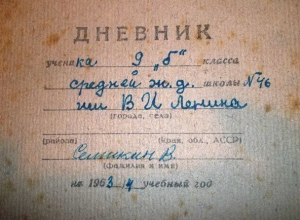 ДНЕВНИК
ученика 9 „б" класса
средней ж.д. школы №46
им В И Ленина
(города, села)
(района) (края, обл., АССР)
Семикин В.
(фамилия и имя)
на 1963/4 учебный год